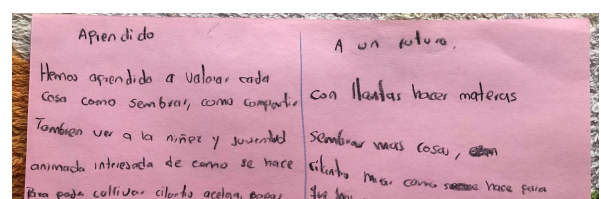 Aprendido
Hemos aprendido a valorar cada
cosa como sembrar, como compartir
Tambien ver a la niñez y juventud
animada interesada de como se hace
Para poder cultivar cilantro acelga, papas
A un futuro.
con llantas hacer materas
sembrar mas cosas,
cilantro mirar como se hace para
que